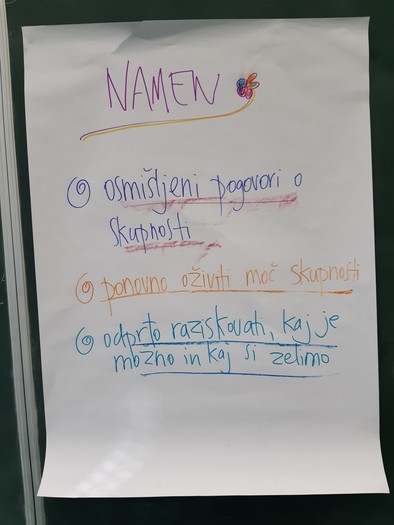 NAMEN
osmišljeni pogovori o
skupnosti
ponovno oživiti moč skupnosti
odprto raziskovati, kaj je
možno in kaj si želimo